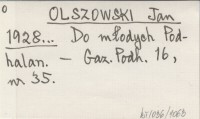 OLSZOWSKI Jan
1928... Do młodych Pod-
halan. — Gaz. Podh. 16,
nr 35.